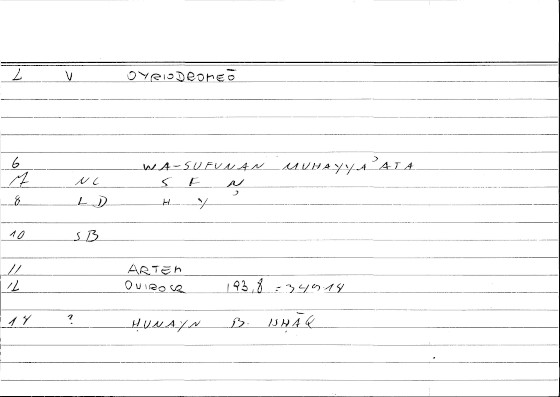 1 V OYRIODROMEŌ
6 WA-SUFUNAN MUHAYYAʾATA
7 NC S F N
8 LD H Y ʾ
10 SB
11 ARTEM
12 ONIROCR 193,8 = 349,14
14 ? ḤUNAYN B. ISḤĀQ